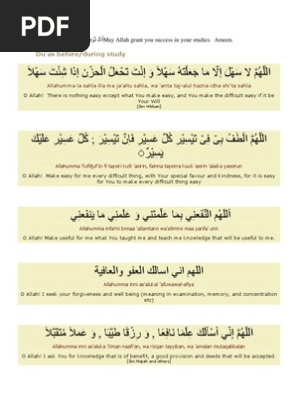 PDF
May Allah grant you success in your studies. Ameen.
Du'as before/during study
اللَّهُمَّ لا سَهْلَ إِلَّا ما جَعَلتَهُ سَهْلاً و إنْتَ تَجْعَلُ الْحَزْنَ إذا شِئْتَ سَهْلاً
Allahumma la sahla illa ma ja'altu sahla, wa 'anta taj-alul hazna idha shi'ta sahla
O Allah! There is nothing easy except what You make easy, and You make the difficult easy if it be
Your Will
[Ibn Hibban]
اللَّهُمَّ الْطُفْ بِيْ فِيْ تَيْسِيْرِ كُلِّ عَسِيْرٍ فَإِنَّ تَيْسِيْرَ كُلِّ عَسِيْرٍ عَلَيْكَ
يَسِيْرٌ
O Allah! Make easy for me every difficult thing, with Your special favour and Kindness, for it is easy
for You to make every difficult thing easy
اللهُم انْفَعْنِي بِمَا عَلَّمْتَنِي وَ عَلِّمْنِي مَا يَنْفَعُنِي
O Allah! Make useful for me what You taught me and teach me knowledge that will be useful to me.
اللهم اني اسالك العفو والعافية
Allahumma inni as'aluka al 'afuwawal-afiya
O Allah! I seek your forgiveness and well being (meaning in examination, memory, and concentration
etc)
اللَّهُمَّ إِنِّي أَسْأَلُكَ عِلْمًا نَافِعًا , وَ رِزْقًا طَيِّبًا , وَ عَمَلاً مُتَقَبَّلاً
Allahumma inni as'aluka 'ilman naafi'an, wa rizqan tayyiban, wa 'amalan mutaqabbalan
O Allah! I ask You for knowledge that is of benefit, a good provision and deeds that will be accepted.
[Ibn Majah and others]